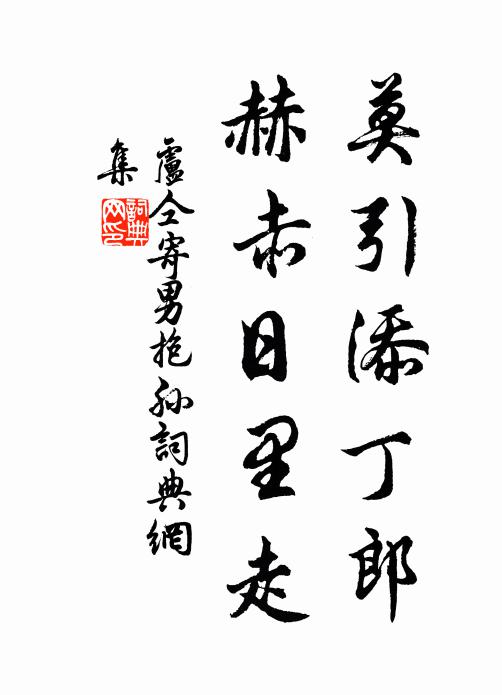 莫引添丁郎
赫赤日里走
盧仝寄男抱孫詞典網
集
詞典網印